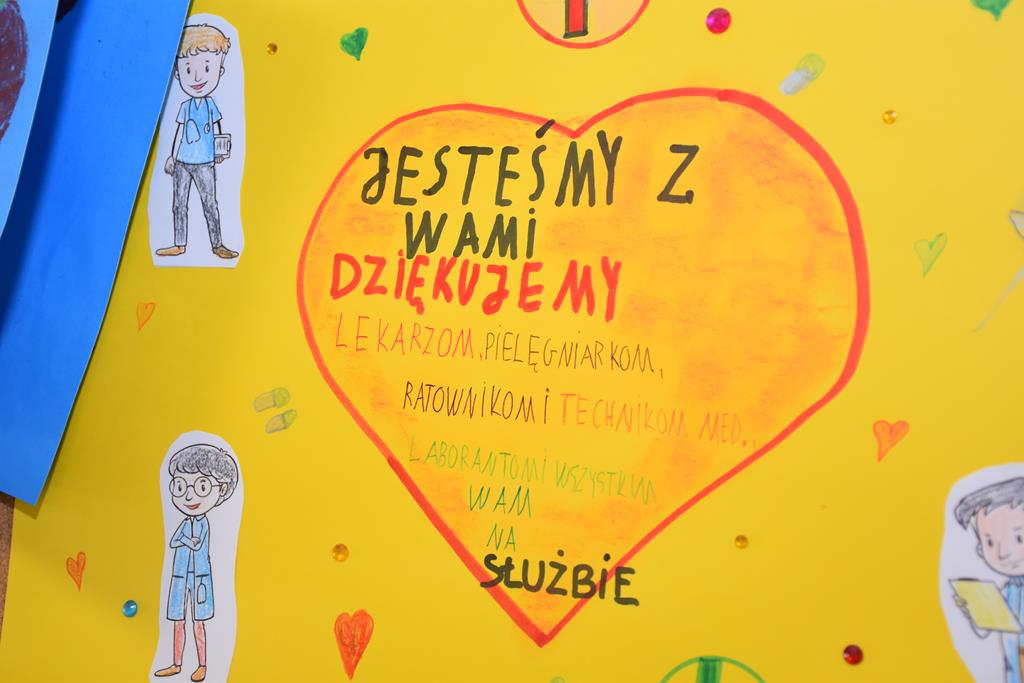 JESTEŚMY Z
WAMI
DZIĘKUJEMY
LEKARZOM, PIELĘGNIARKOM,
RATOWNIKOM I TECHNIKOM MED.,
LABORANTOM I WSZYSTKIM
WAM
NA
SŁUŻBIE